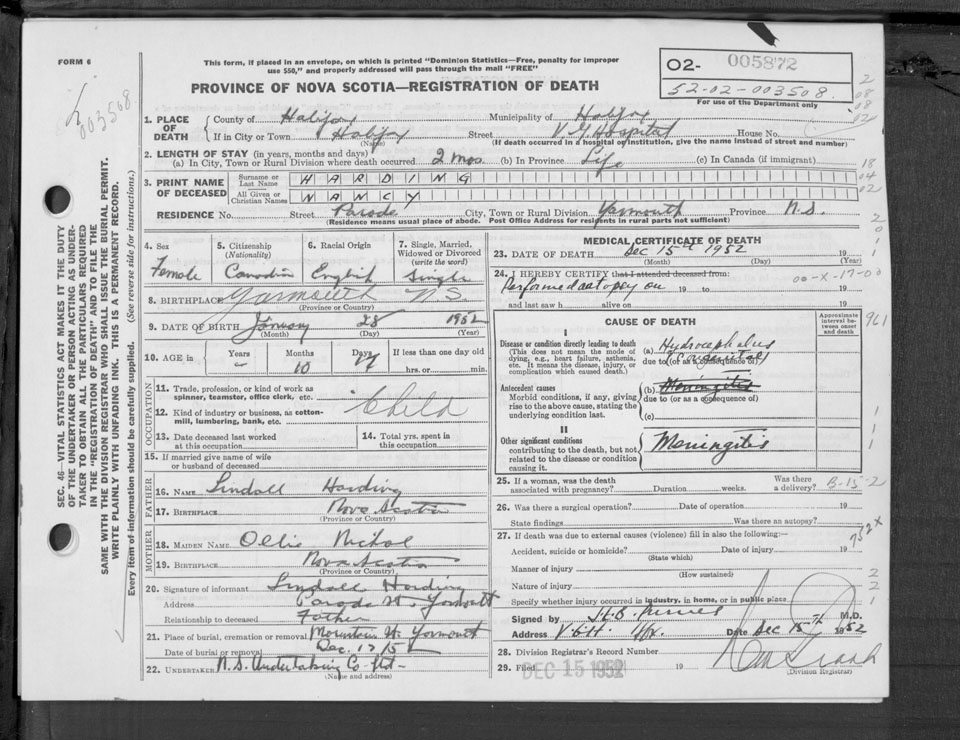 FORM 6
This form, if placed in an envelope, on which is printed "Dominion Statistics—Free, penalty for improper
use $50," and properly addressed will pass through the mail "FREE"
PROVINCE OF NOVA SCOTIA—REGISTRATION OF DEATH
02- 005872
52-02-003508
For use of the Department only
003508
SEC. 46—VITAL STATISTICS ACT MAKES IT THE DUTY
OF THE UNDERTAKER OR PERSON ACTING AS UNDER-
TAKER TO OBTAIN ALL THE PARTICULARS REQUIRED
IN THE "REGISTRATION OF DEATH" AND TO FILE THE
SAME WITH THE DIVISION REGISTRAR WHO SHALL ISSUE THE BURIAL PERMIT.
WRITE PLAINLY WITH UNFADING INK. THIS IS A PERMANENT RECORD.
Every item of information should be carefully supplied. (See reverse side for instructions.)
1. PLACE OF DEATH
County of Halifax Municipality of Halifax
If in City or Town Halifax Street V.G. Hospital House No.
(Name) (If death occurred in a hospital or institution, give the name instead of street and number)
2. LENGTH OF STAY (in years, months and days)
(a) In City, Town or Rural Division where death occurred 2 mos. (b) In Province Life (c) In Canada (if immigrant)
3. PRINT NAME OF DECEASED
Surname or Last Name HARDING
All Given or Christian Names NANCY
RESIDENCE No. Street Parade City, Town or Rural Division Yarmouth Province N.S.
(Residence means usual place of abode. Post Office Address for residents in rural parts not sufficient)
4. Sex
Female
5. Citizenship
(Nationality)
Canadian
6. Racial Origin
English
7. Single, Married,
Widowed or Divorced
(write the word)
Single
8. BIRTHPLACE Yarmouth N.S.
(Province or Country)
9. DATE OF BIRTH January 28 1952
(Month) (Day) (Year)
10. AGE in Years Months Days If less than one day old
– 10 17 hrs. or min.
OCCUPATION
11. Trade, profession, or kind of work as
spinner, teamster, office clerk, etc.
Child
12. Kind of industry or business, as cotton-
mill, lumbering, bank, etc.
13. Date deceased last worked
at this occupation
14. Total yrs. spent in
this occupation
15. If married give name of wife
or husband of deceased
FATHER
16. NAME Lindall Harding
17. BIRTHPLACE Nova Scotia
(Province or Country)
MOTHER
18. MAIDEN NAME Ollie Nickol
19. BIRTHPLACE Nova Scotia
(Province or Country)
20. Signature of informant Lindall Harding
Address Parade St. Yarmouth
Relationship to deceased Father
21. Place of burial, cremation or removal Mountain St. Yarmouth
Date of burial or removal Dec. 17/52
22. UNDERTAKER N.S. Undertaking Co. Ltd.
(Name and address)
MEDICAL CERTIFICATE OF DEATH
23. DATE OF DEATH Dec 15th 1952 19
(Month) (Day) (Year)
24. I HEREBY CERTIFY that I attended deceased from:
Performed autopsy on 19 to 19
00-X-17-00
and last saw h alive on 19
CAUSE OF DEATH
Approximate
interval be-
tween onset
and death
I
Disease or condition directly leading to death
(This does not mean the mode of
dying, e.g., heart failure, asthenia,
etc. It means the disease, injury, or
complication which caused death.)
(a) Hydrocephalus
due to (or as a consequence of)
Congenital
Antecedent causes
Morbid conditions, if any, giving
rise to the above cause, stating the
underlying condition last.
(b) Meningitis
due to (or as a consequence of)
(c)
II
Other significant conditions
contributing to the death, but not
related to the disease or condition
causing it.
Meningitis
25. If a woman, was the death
associated with pregnancy? Duration weeks. Was there
a delivery? B-15-2
26. Was there a surgical operation? Date of operation 19
State findings Was there an autopsy?
27. If death was due to external causes (violence) fill in also the following:—
Accident, suicide or homicide? Date of injury 19
(State which)
Manner of injury
(How sustained)
Nature of injury
Specify whether injury occurred in industry, in home, or in public place
Signed by M.D.
Address V.G.H. Hfx. Date Dec 15th 1952
28. Division Registrar's Record Number
29. Filed DEC 15 1952 19
(Division Registrar)
2
08
08
02
18
04
02
2
0
1
1
961
1
1
1
752X
2
2
1